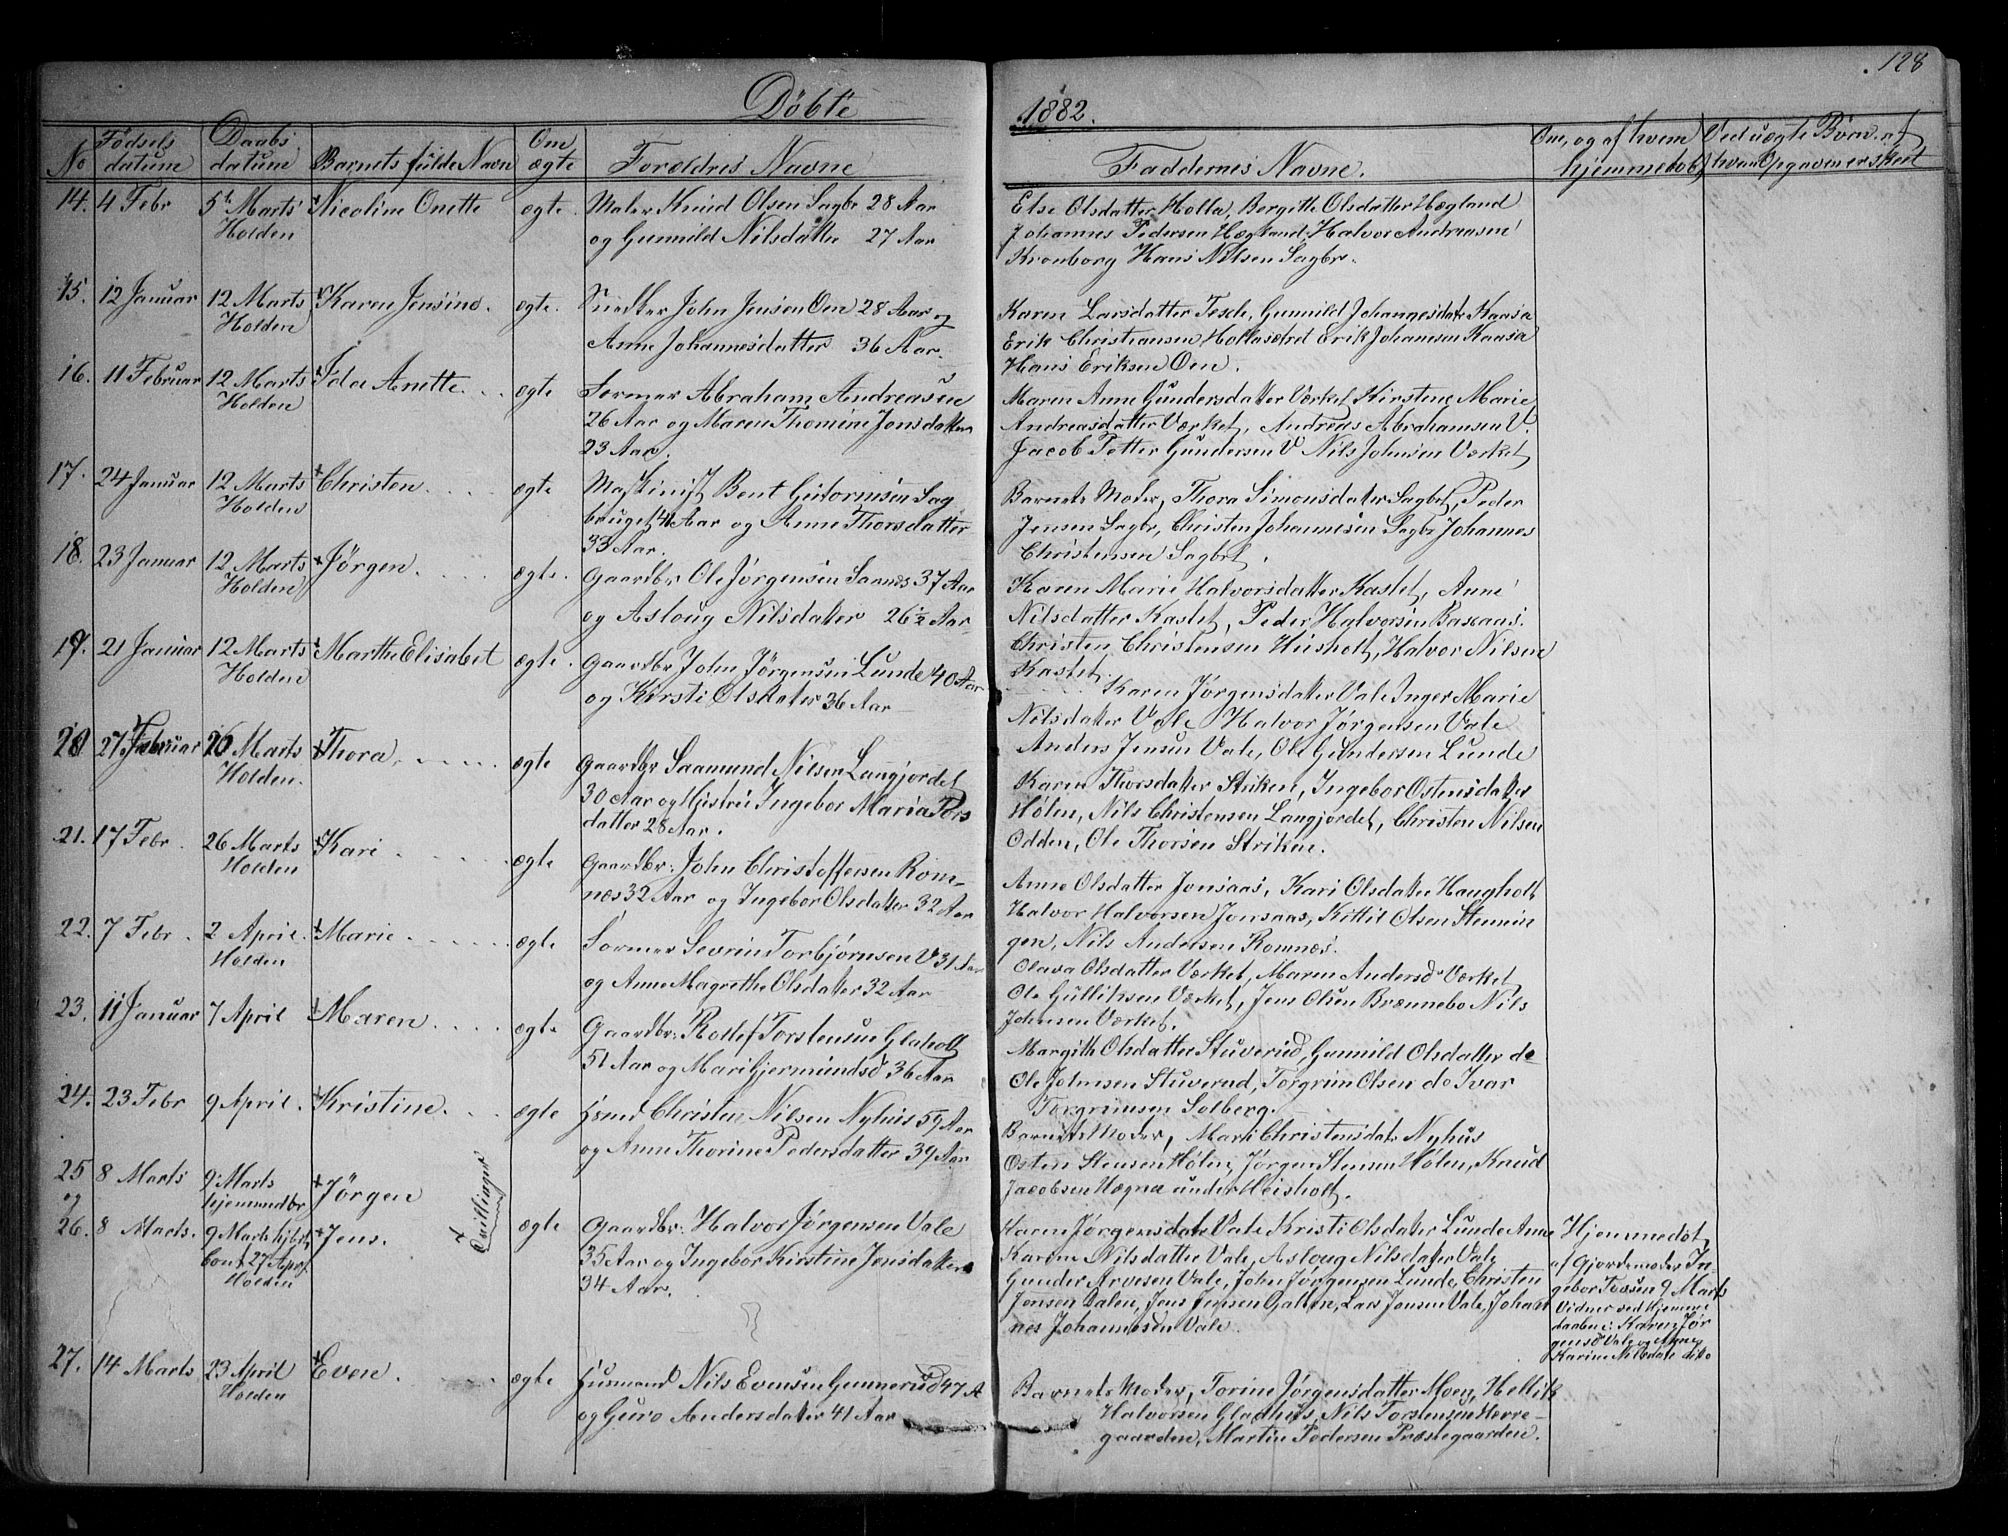 128
Døbte
1882.
No
Fødsels datum
Daabs datum
Barnets fulde Navn
Om ægte
Forældres Navne
Faddernes Navne.
Om, og af hvem hjemmedøbt
Ved uægte Børn, af hvem Opgaven er skeet
14. 4 Febr 5te Marts Nicoline Onette ægte. Maler Knud Olsen Sagbr 28 Aar
Holden og Gunnild Nilsdatter 27 Aar
Else Olsdatter Holla, Bergitte Olsdatter Hægland
Johannes Pedersen Hægland, Halvor Andreasen
Kronborg Hans Nilsen Sagbr.
15. 12 Januar 12 Marts Karen Jensine. ægte. Snedker John Jensen Oen 28 Aar og
Holden Anne Johannesdatter 36 Aar.
Karen Larsdatter Tesch, Gunnild Johannesdatr Kaasa
Erik Christiansen Hollasætret Erik Johannsen Kaasa
Hans Eriksen Oen.
16. 11 Februar 12 Marts Ida Anette. ægte Former Abraham Andreasen
Holden 26 Aar og Maren Thomine Jonsdatter
23 Aar.
Maren Anne Gundersdatter Værket Kirstine Marie
Andreasdatter Værket, Andreas Abrahamsen V.
Jacob Petter Gundersen V Nils Johnsen Værket
17. 24 Januar 12 Marts Christen. ægte Maskinist Bent Guttormsen Sag
Holden bruget 41 Aar og Anne Thorsdatter
33 Aar.
Barnets Moder, Thora Simonsdatter Sagbr, Peder
Jensen Sagbr, Christen Johannesen Sagbr Johannes
Christensen Sagbr.
18. 23 Januar 12 Marts Jørgen. ægte. Gaardbr Ole Jørgensen Saanes 37 Aar
Holden og Asloug Nilsdatter 26½ Aar
Karen Marie Halvorsdatter Kastet, Anne
Nilsdatter Kastet, Peder Halvorsen Baxaas.
Christen Christensen Hiisholt, Halvor Nilsen
Kastet.
19. 21 Januar 12 Marts Marthe Elisabet ægte. Gaardbr John Jørgensen Lunde 40 Aar
Holden og Kirsti Olsdatter 36 Aar
Karen Jørgensdatter Vale Inger Marie
Nilsdatter Vale Halvor Jørgensen Vale
Anders Jensen Vale, Ole Gundersen Lunde
20 27 Februar 26 Marts Thora. ægte Gaardbr Saamund Nilsen Langjordet
Holden. 30 Aar og Hustru Ingebor Maria Tors
datter 28 Aar.
Karen Thorsdatter Striken, Ingebor Ostensdatter
Hølen, Nils Christensen Langjordet, Christen Nilsen
Odden, Ole Thorsen Striken.
21. 17 Febr. 26 Marts Kari. ægte Gaardbr: John Christoffersen Rom-
Holden næs 32 Aar og Ingebor Olsdatter 32 Aar
Anne Olsdatter Jonsaas, Kari Olsdatter Haugholt
Halvor Halvorsen Jonsaas, Kittil Olsen Stenin
gen, Nils Andersen Romnæs.
22. 7 Febr. 2 April. Marie. ægte Formes Severin Torbjørnsen V 31 Aar
Holden og Anne Magrethe Olsdatter 32 Aar
Olava Olsdatter Værket, Maren Andersd Værket
Ole Gulliksen Værket, Jens Olsen Brænnebo Nils
Johnsen Værket.
23. 11 Januar 7 April Maren. ægte Gaardbr: Rollef Torstensen Glaholt
51 Aar og Mari Gjermundsd 36 Aar
Margith Olsdatter Stuverud, Gunnild Olsdatter do
Ole Johnsen Stuverud, Torgrim Olsen do Ivar
Torgrimsen Solberg.
24. 23 Febr 9 April. Kristine. ægte Husmd Christen Nilsen Nyhus 59 Aar
og Anne Thorine Pedersdatter 39 Aar
Barnets Moder, Mari Christensdatr Nyhus
Osten Stensen Hølen, Jørgen Stensen Hølen, Knud
Jacobsen Hægna under Heisholt.
25 8 Marts 9 Marts Jørgen
og hjemmedbr
26. 8 Marts. 9 Marts hjdbt Jens. Tvillinger ægte Gaardbr: Halvor Jørgensen Vale
conf. 27 April 35 Aar og Ingebor Kirstine Jensdatter
Holden 34 Aar.
Karen Jørgensdatr Vale Kristi Olsdatter Lunde Anne
Karine Nilsdatter Vale, Asloug Nilsdatter Vale
Gunder Arvesen Vale, John Jørgensen Lunde, Christen
Jensen Dalen, Jens Jensen Gallen, Lars Jensen Vale, Johan
nes Johannesen Vale.
Hjemmedøbt
af Gjordemoder In
gebor Tossen 9 Marts
Vidner ved Hjemme
daaben: Karen Jør
gensd Vale og Anne
Karine Nilsdatr ditto
27. 14 Marts 23 April Even. ægte Husmand Nils Evensen Gunnerud 47 A
Holden og Guro Andersdatter 41 Aar
Barnets Moder, Torine Jørgensdatter Moen, Hellik
Halvorsen Gladhus, Nils Torstensen Herre-
gaarden, Martin Pedersen Præstegaarden.